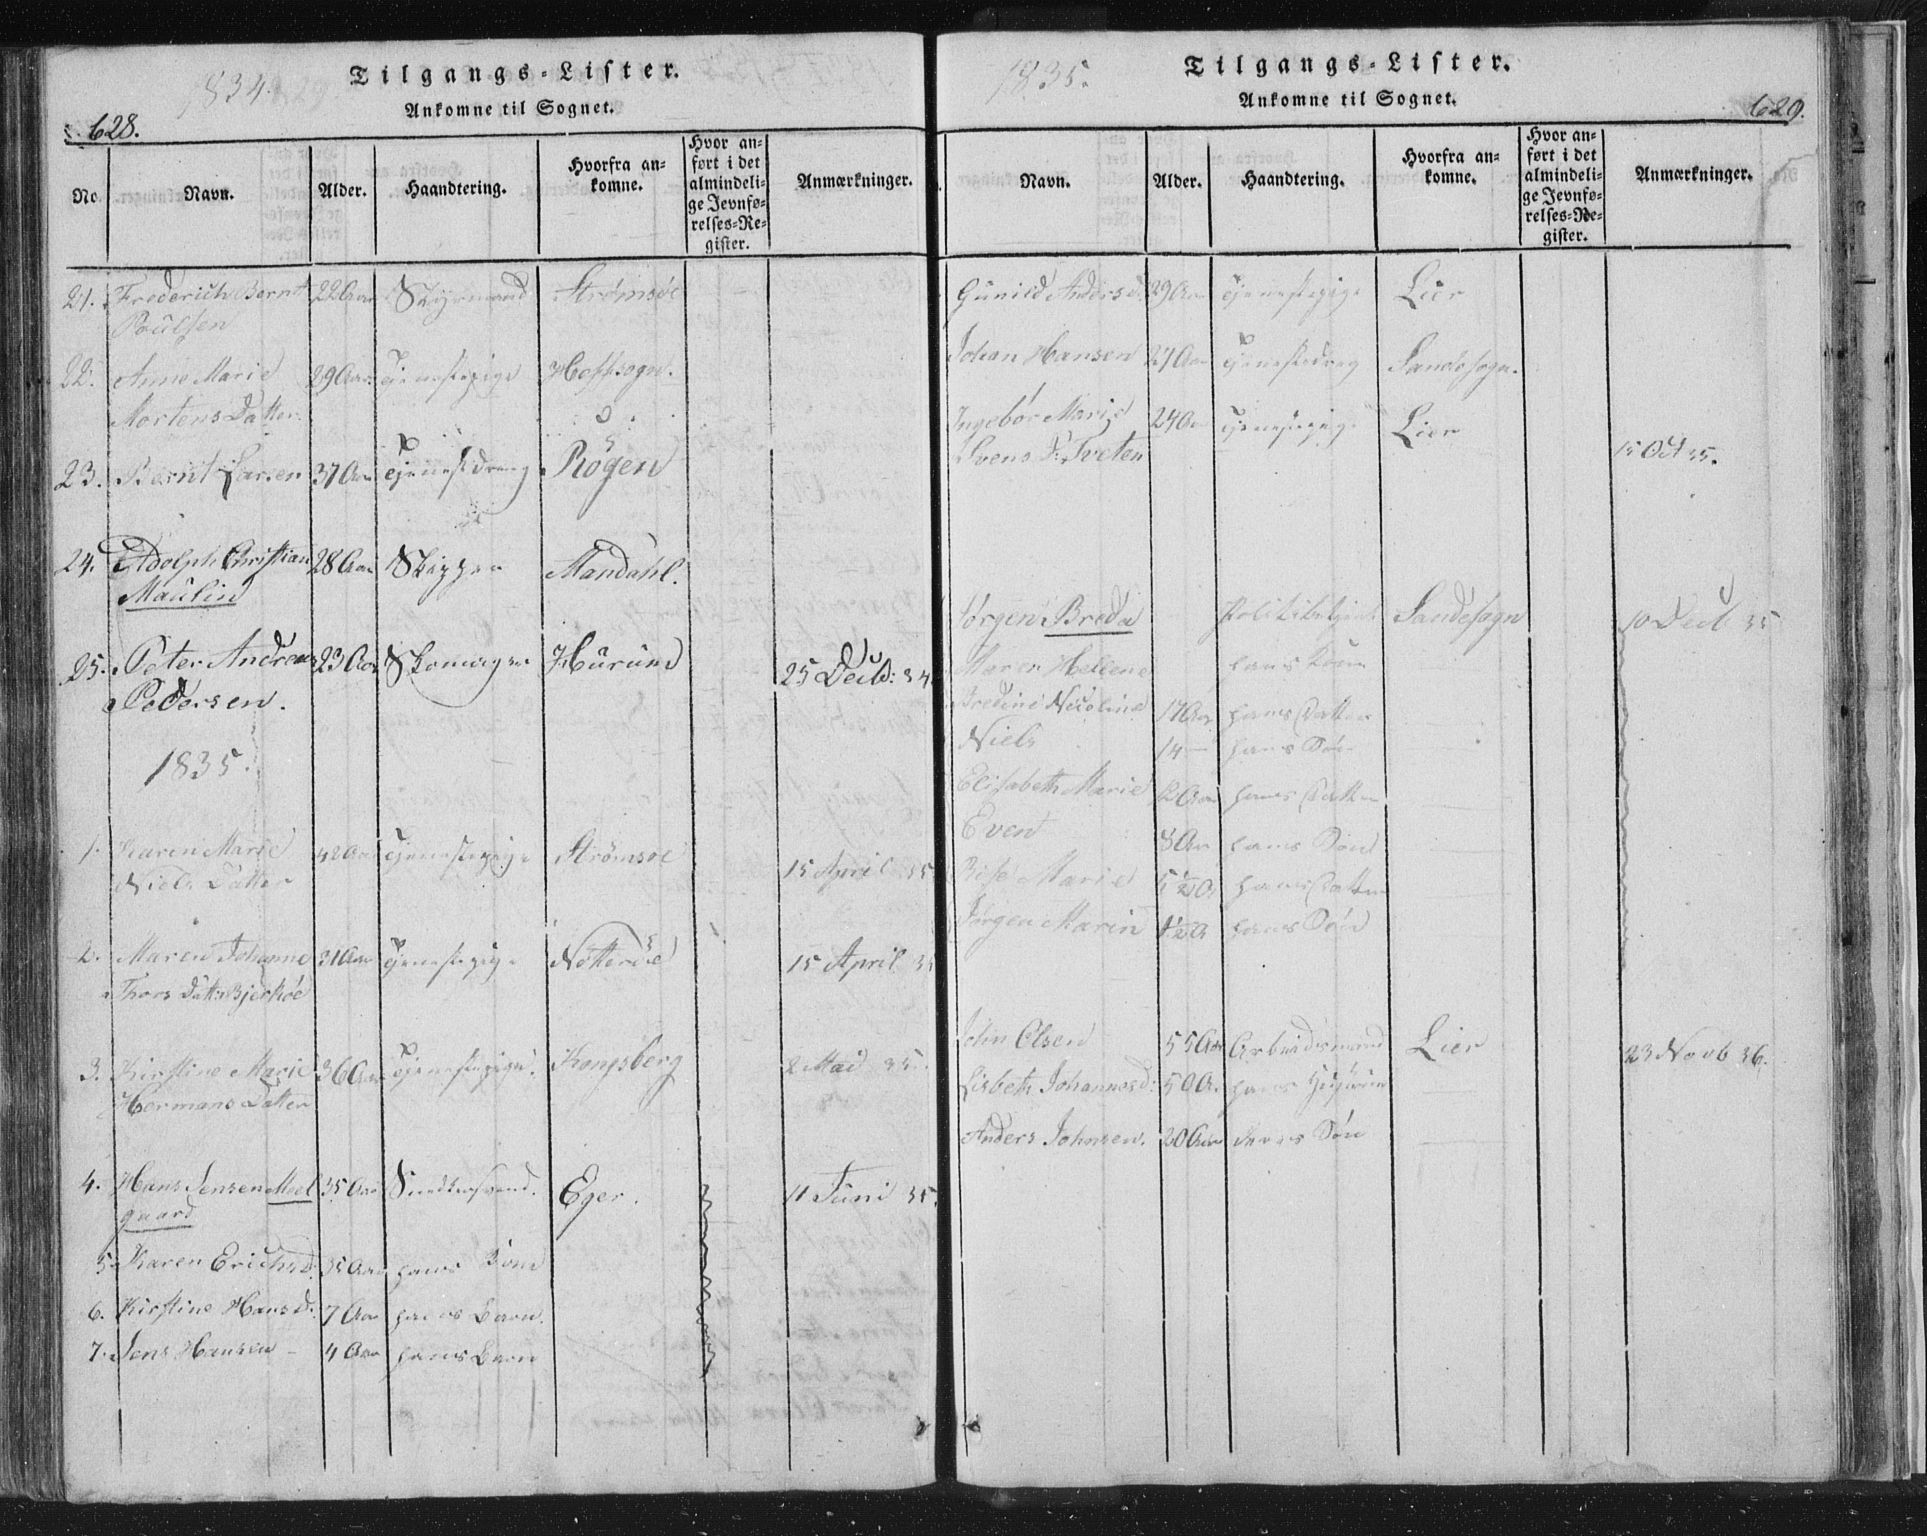 1834.
Tilgangs-Lister.
Ankomne til Sognet.
628.
No. Navn. Alder. Haandtering. Hvorfra ankomne. Hvor anført i det almindelige Jevnførelses-Register. Anmærkninger.
21. Frederich Bernt 22 Aar Styrmand Strømsøe
Poulsen
22. Anne Marie 29 Aar Tjenestepige Hofsogn.
Mortens Datter
23. Bernt Larsen 37 Aar Tjenestedreng Rögen
24. Adolph Christian 28 Aar Skipper Mandahl.
Maulin
25. Peter Andreas 23 Aar Skomager Hurum 25 Decb: 34.
Pedersen.
1835.
1. Karen Marie 42 Aar Tjenestepige Strømsøe 15 April 35
Niels Datter
2. Maren Johanne 31 Aar Tjenestepige Nötteröe 15 April 35
Thors Datt: Bjerköe
3. Kirstine Marie 36 Aar Tjenestepige. Kongsberg 2 Mai 35.
Hermans Datter
4. Hans Jensen Moel 35 Aar Eger. 11 Juni 35.
gaard
5. Karen Erichsd. 35 Aar hans Kone
6. Kirstine Hansd. 7 Aar hans Barn.
7. Jens Hansen - 4 Aar hans Barn
1835.
Tilgangs-Lister.
Ankomne til Sognet.
629.
Navn. Alder. Haandtering. Hvorfra ankomne. Hvor anført i det almindelige Jevnførelses-Register. Anmærkninger.
Gunild Andersd. 29 Aar Tjenestepige Lier
Johan Hansen 27 Aar Tjenestedreng Sandesogn.
Ingebor Marie 24 Aar Tjenestepige Lier
Svens D: Tveten 15 Oct 35.
Jørgen Breda Sandesogn 10 Decb 35
Maren Hellene hans Kone
Nicoline 17 Aar hans Datter
Niels 14 — hans Sön
Elisabeth Marie 12 Aar hans Datter
Even 8 Aar hans Sön
Marie 5 1/2 A hans Datter
Jørgen Marin 1 1/2 A hans Sön
John Olsen 55 Aar Arbeidsmand Lier 23 Novb 36.
Lisbeth Johannesd: 50 A. hans Hustrue
Anders Johnsen. 20 Aar deres Sön